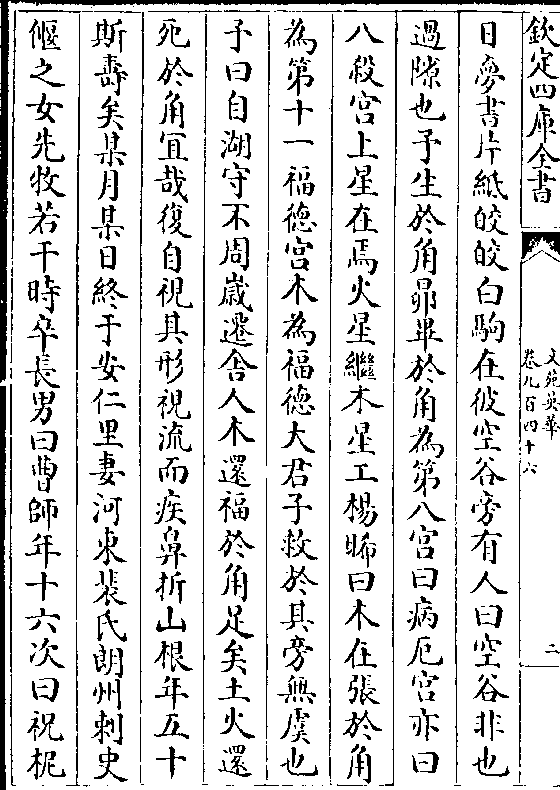 欽定四庫全書
文苑英華
卷九百四十六
二
日夢書片紙皎皎白駒在彼空谷旁有人曰空谷非也
過隙也予生於角昴畢於角為第八宮曰病厄宮亦曰
八殺宮上星在焉火星繼木星工楊晞曰木在張於角
為第十一福德宮木為福德大君子救於其旁無虞也
予曰自湖守不周歲遷舍人木還福於角足矣土火還
死於角宜哉復自視其形視流而疾鼻折山根年五十
斯壽矣某月某日終于安仁里妻河東裴氏朗州刺史
偃之女先牧若干時卒長男曰曹師年十六次曰祝柅